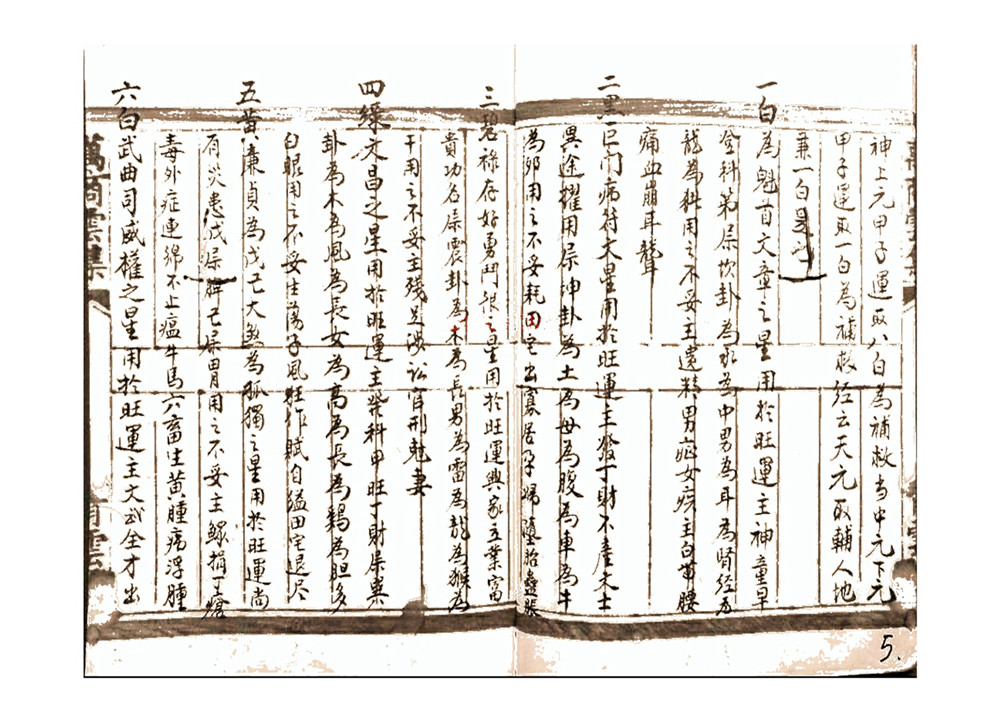 神上元甲子運取八白為補救当中元下元
甲子運取一白為補救经云天元取輔人地
兼一白是
一白為魁首文章之星用於旺運主神童早
登科第屬坎卦為水為中男為耳為腎经為
龍為科用之不妥主遺精男疝女疾主白带腰
痛血崩耳聾
二黑巨门病符木星用於旺運主發丁財不產文士
異途擢用屬坤卦為土為母為腹為車為牛
為卯用之不妥耗田宅出寡居孕婦墮胎蠱脹
三碧禄存好勇鬥狠之星用於旺運興家立業富
貴功名屬震卦為木為長男為雷為龍為猴為
干用之不妥主残足讼官刑尅妻
四綠文昌之星用於旺運主登科甲旺丁財屬巽
卦為木為風為長女為高為長為鷄為胆多
白眼用之不妥生蕩子風狂作賦自縊田宅退尽
五黄廉貞為戊己大煞為孤獨之星用於旺運尚
有災患戊屬脾己屬胃用之不妥主鰥損丁瘡
毒外症連綿不止瘟牛馬六畜生黄腫病浮腫
六白武曲司威權之星用於旺運主文武全才出
萬商雲集
商雲
5.